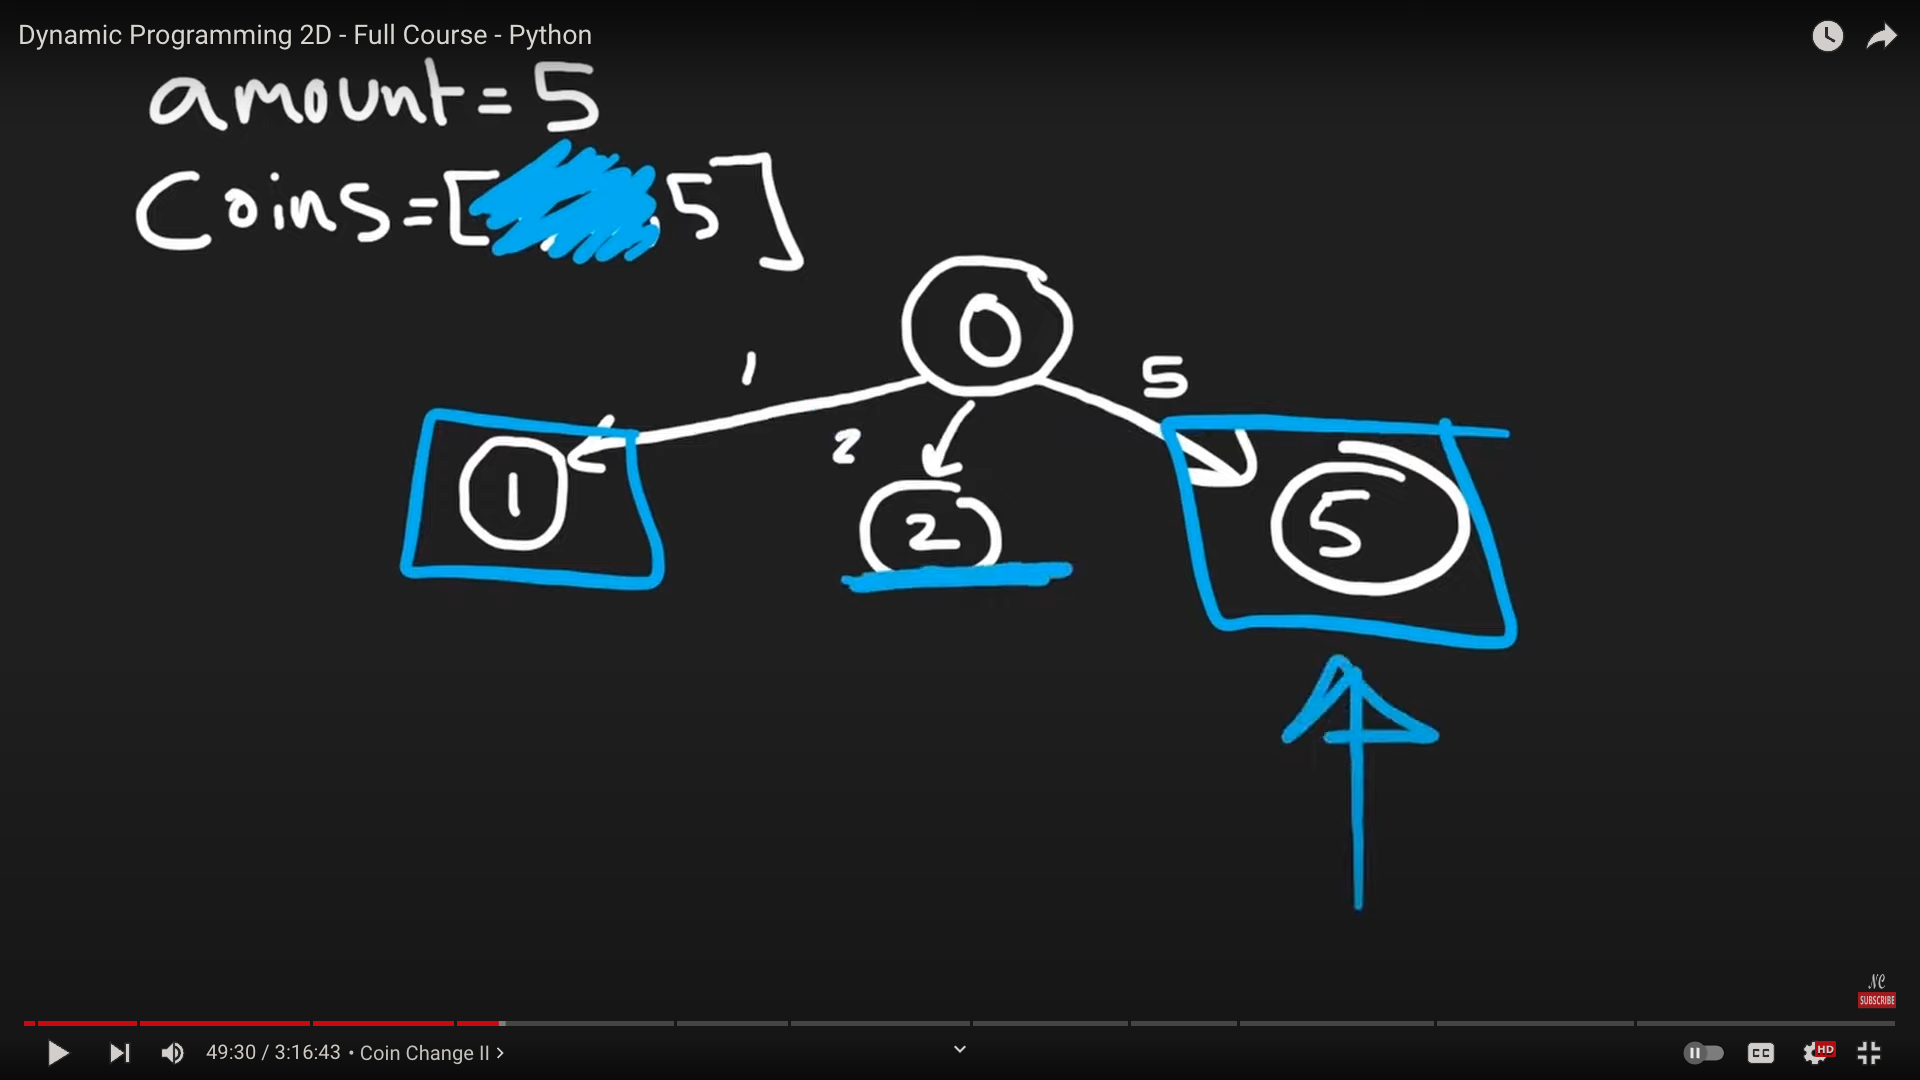 Dynamic Programming 2D - Full Course - Python
amount = 5
Coins = [ , 5 ]
0
1
5
2
1
2
5
NC
SUBSCRIBE
49:30 / 3:16:43 • Coin Change II >
CC
HD